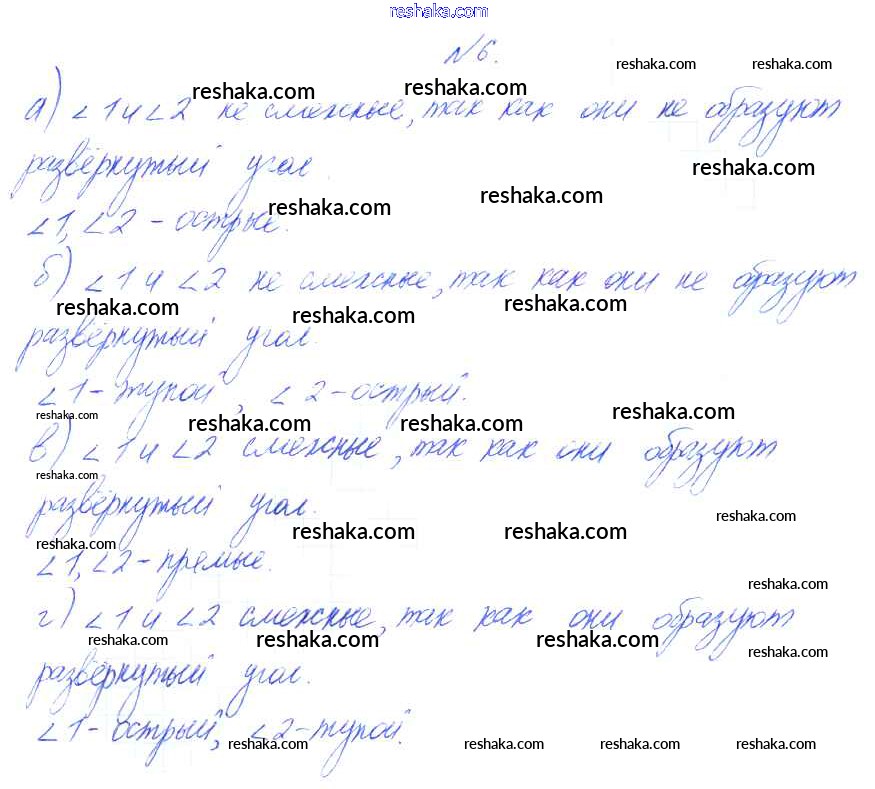 reshaka.com
№6.
reshaka.com reshaka.com
reshaka.com reshaka.com
а) ∠1 и ∠2 не смежные, так как они не образуют
reshaka.com
развёрнутый угол.
reshaka.com reshaka.com
∠1, ∠2 - острые.
б) ∠1 и ∠2 не смежные, так как они не образуют
reshaka.com reshaka.com reshaka.com
развёрнутый угол.
∠1 - тупой, ∠2 - острый.
reshaka.com reshaka.com reshaka.com reshaka.com
в) ∠1 и ∠2 смежные, так как они образуют
reshaka.com
развёрнутый угол.
reshaka.com
reshaka.com reshaka.com reshaka.com
∠1, ∠2 - прямые.
reshaka.com
г) ∠1 и ∠2 смежные, так как они образуют
reshaka.com reshaka.com reshaka.com reshaka.com
развёрнутый угол.
∠1 - острый, ∠2 - тупой.
reshaka.com reshaka.com reshaka.com reshaka.com